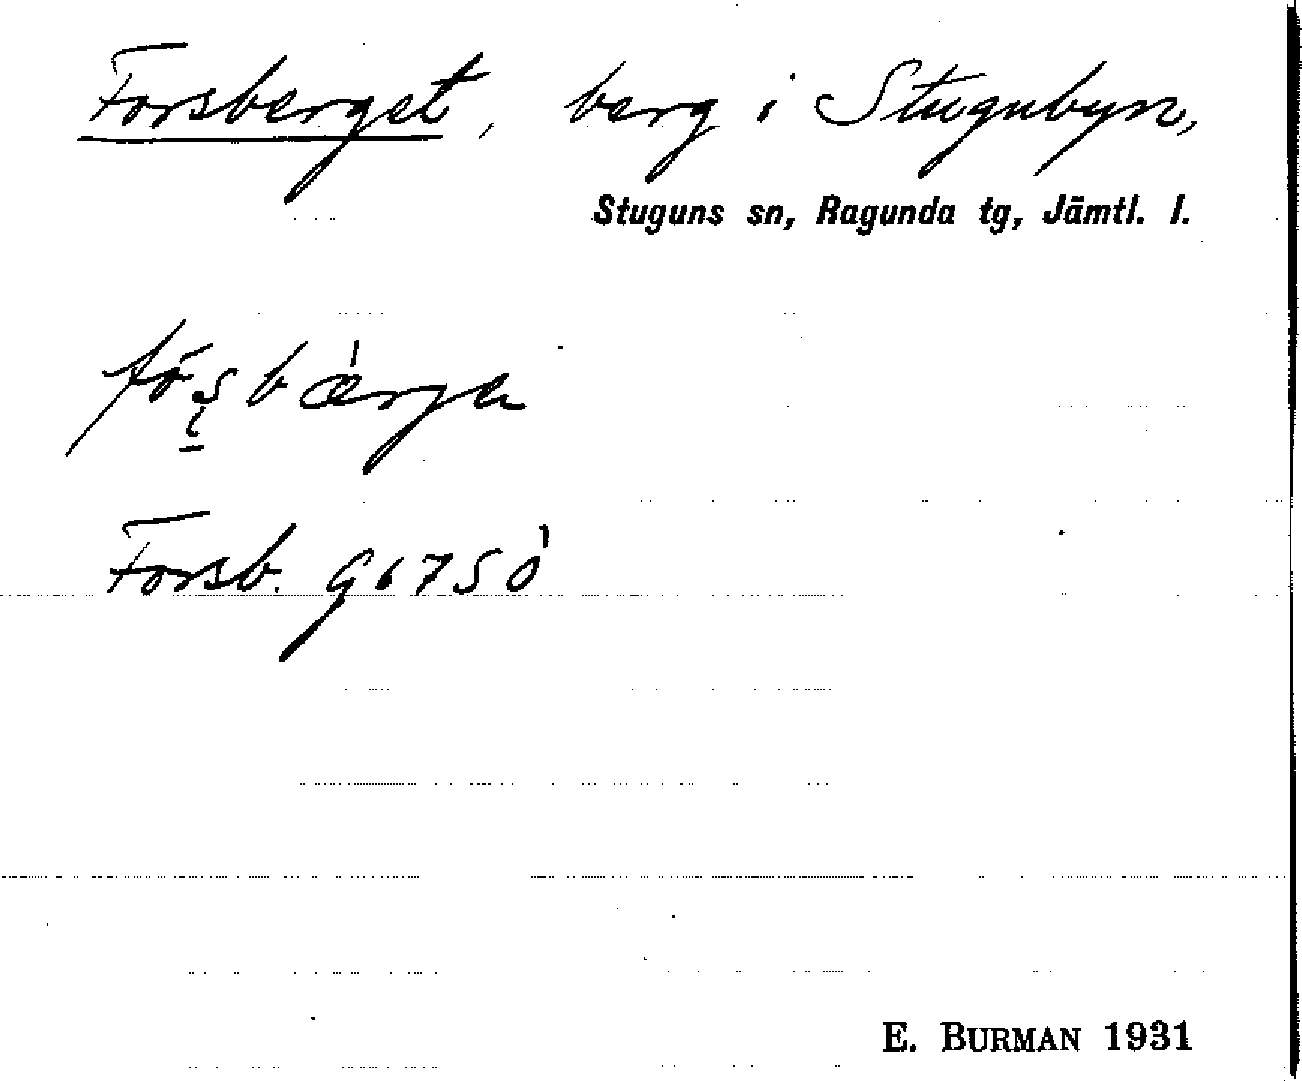 Forsberget, berg i Stugubyn,
Stuguns sn, Ragunda tg, Jämtl. l.
Forsb. G6750
E. BURMAN 1931